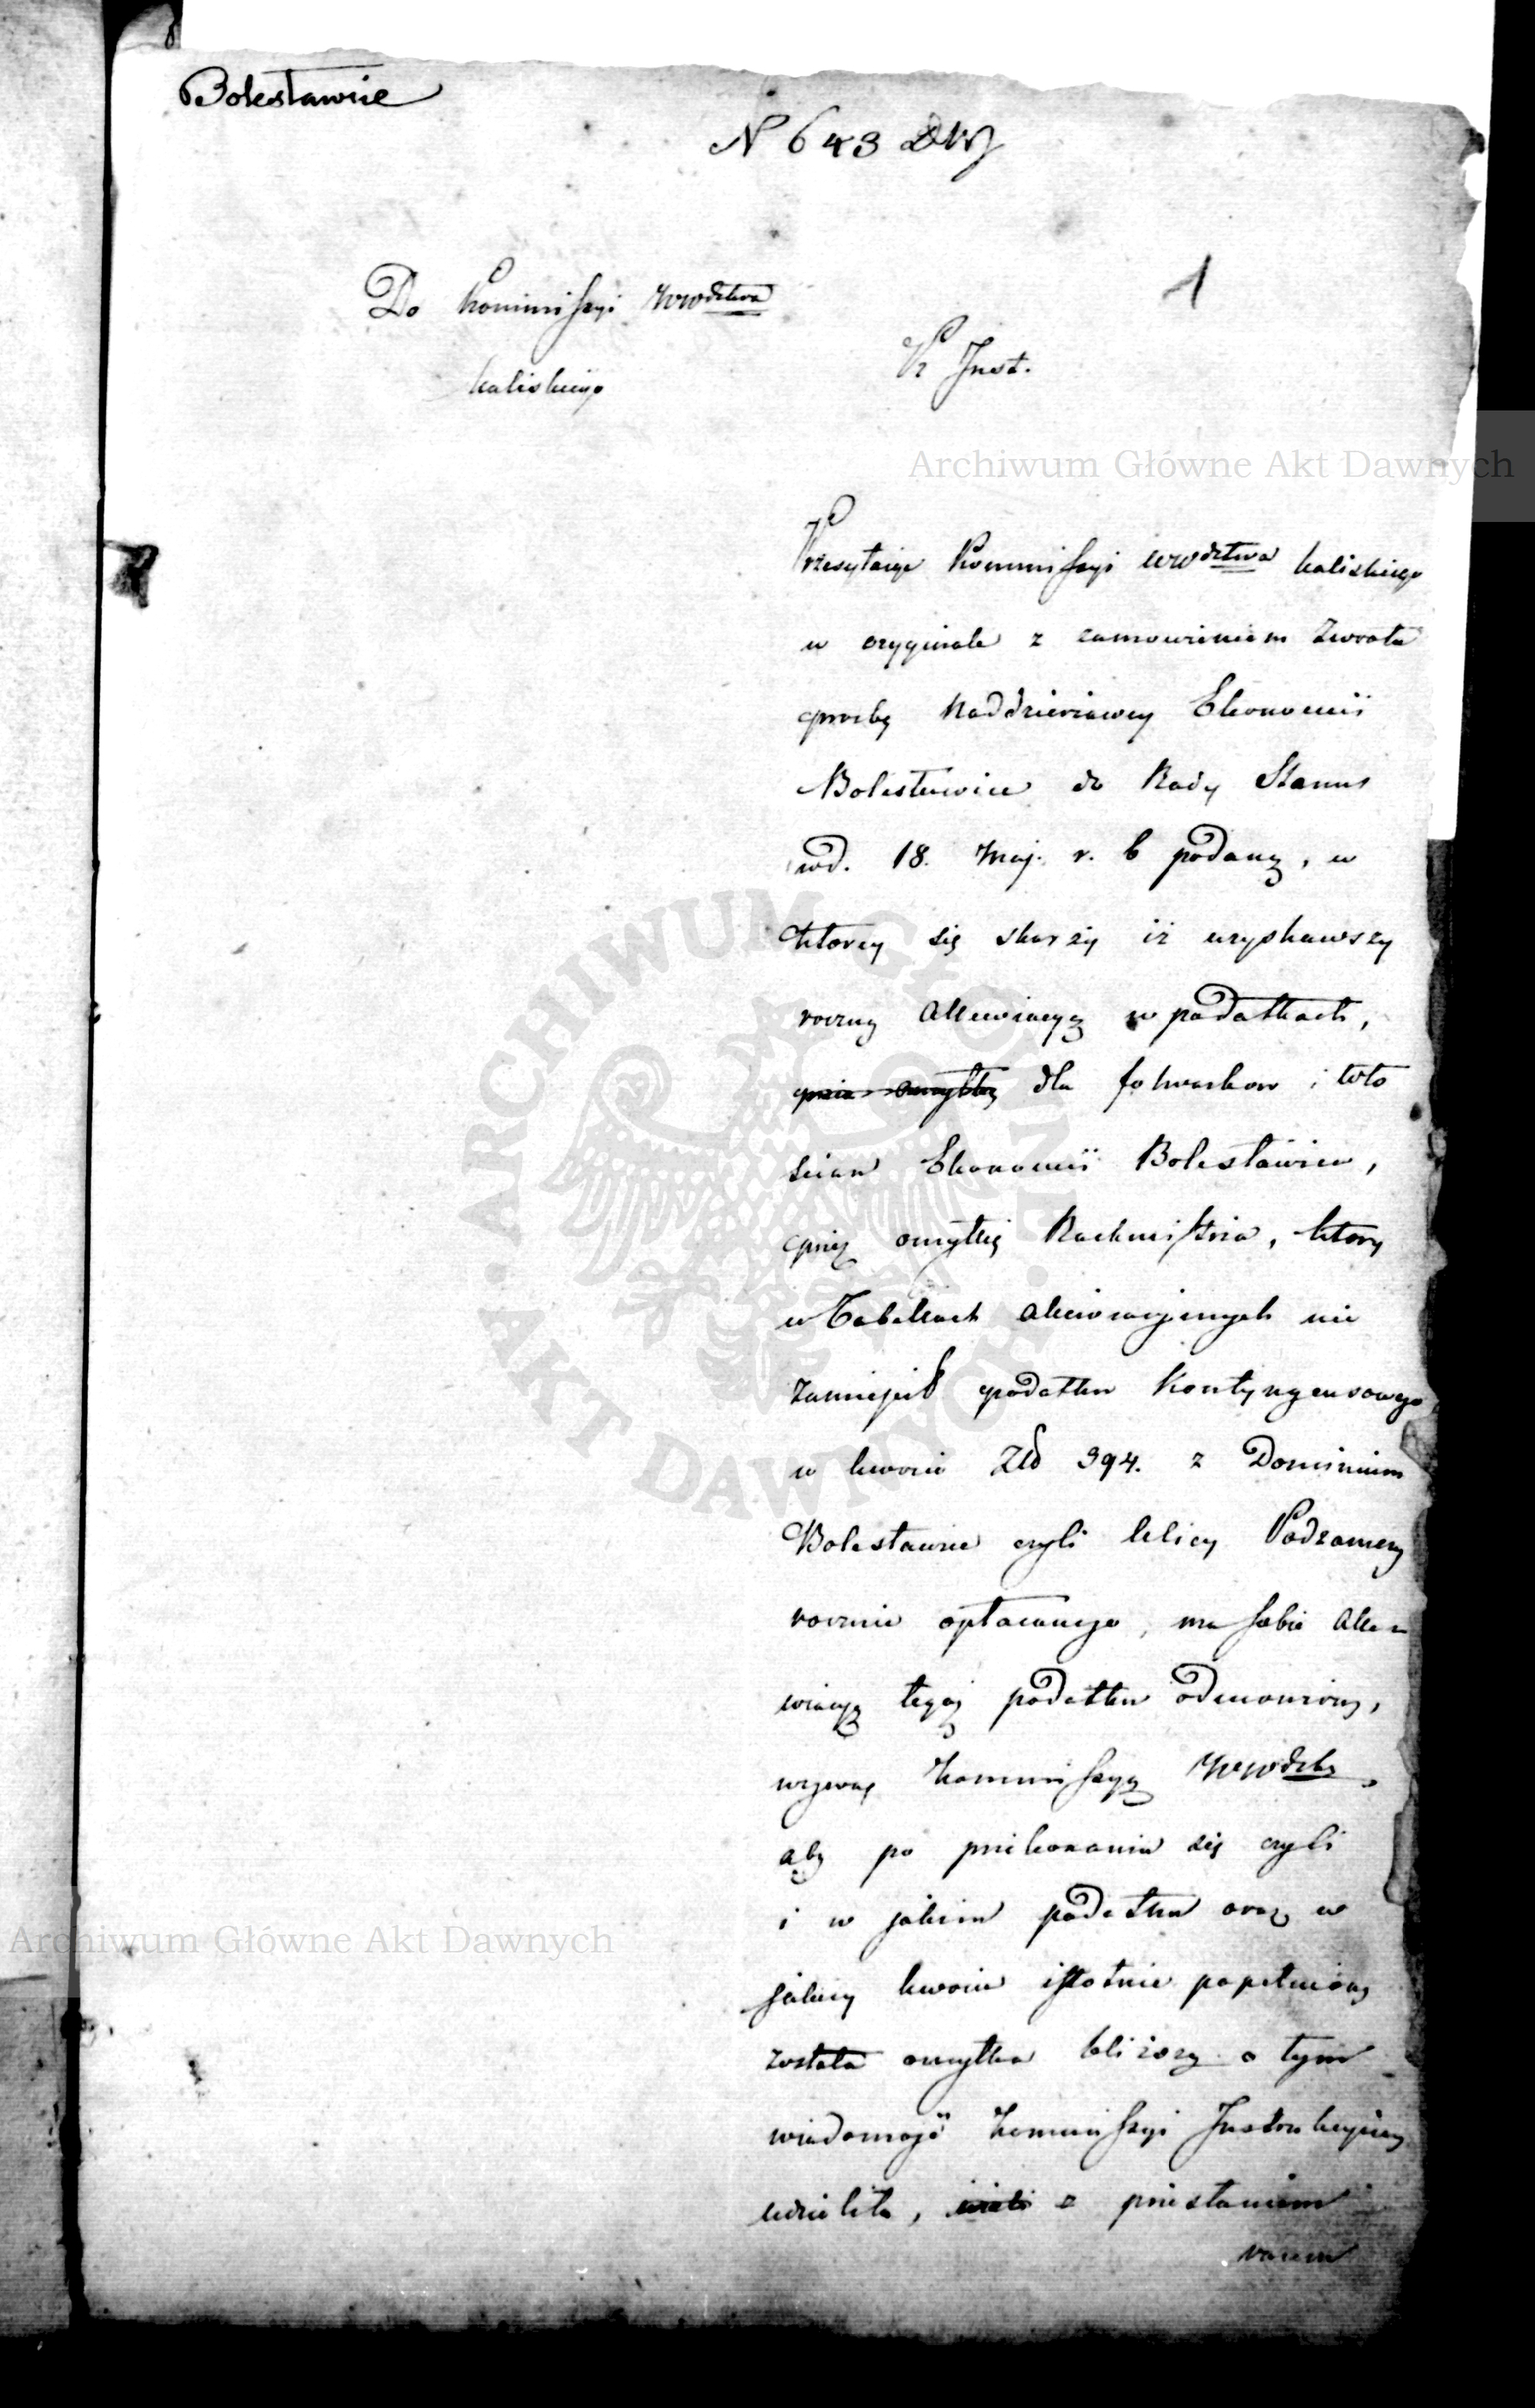 Bolesławiec
N 643 DWJ
1
Do Kommissyi Wwdztwa
Kaliskiego
Pr Inst.
Przesyłaiąc Kommissyi Wwdztwa Kaliskiego
w oryginale z zamowieniem zwrotu
proźbę Naddzierżawcy Ekonomii
Bolesławiec do Rady Stanu
wd. 18. Maj. r. b podaną, w
ktorey się skarży iż uzyskawszy
roczną allewiacyą w podatkach,
przez omyłkę dla folwarkow i wło
ścian Ekonomii Bolesławiec,
przez omyłkę Rachmistrza, ktory
w Tabellach allewiacyinych nie
zamieścił podatku Kontyngensowego
w kwocie Złł 394. z Dominium
Bolesławiec czyli klicy Podzamcze
rocznie opłacanego, ma sobie alle
wiacyą tegoż podatku odmowioną,
wzywa Kommissyą Wwdzką,
aby po przekonaniu się czyli
i w jakim podatku oraz w
jakiey kwocie istotnie popełnioną
została omyłka bliższą o tym
wiadomość Kommissyi Instrukcyiney
udzieliła, z przesłaniem
razem
Archiwum Główne Akt Dawnych
Archiwum Główne Akt Dawnych
ARCHIWUM GŁÓWNE
AKT DAWNYCH